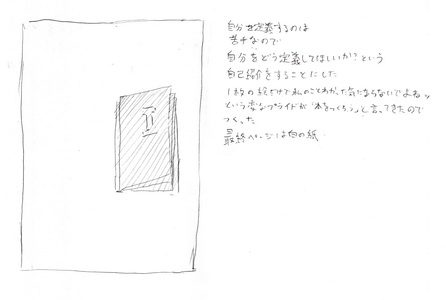 自分を定義するのは
苦手なので
自分をどう定義してほしいか？という
自己紹介をすることにした
1枚の絵だけで私のことわかった気にならないでよねッ
という変なプライドが「本をつくろう」と言ってきたので
つくった
最終ページは白の紙.